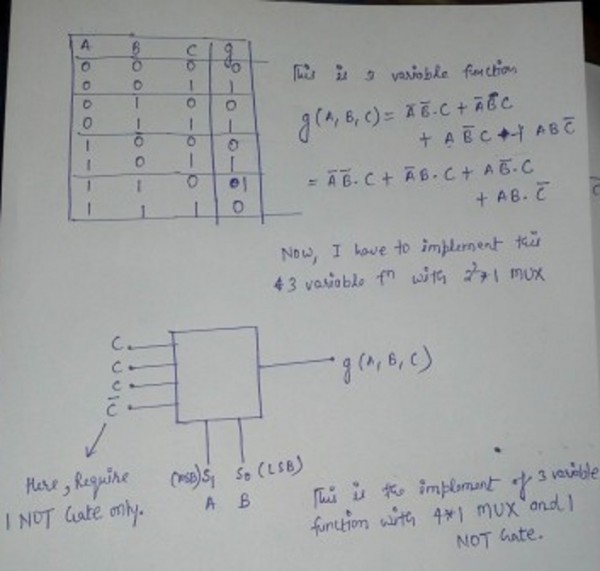 A B C g
0 0 0 0
0 0 1 1
0 1 0 0
0 1 1 1
1 0 0 0
1 0 1 1
1 1 0 1
1 1 1 0
This is 3 variable function
g(A, B, C) = A̅ B̅.C + A̅ B C
+ A B̅ C + A B C̅
= A̅ B̅.C + A̅ B.C + A B̅.C
+ AB.C̅
Now, I have to implement this
3 variable fⁿ with 2²*1 MUX
C
C
C
C̅
g(A, B, C)
(MSB) S₁ S₀ (LSB)
A B
Here, Require
1 NOT Gate only.
This is the implement of 3 variable
function with 4*1 MUX and 1
NOT Gate.